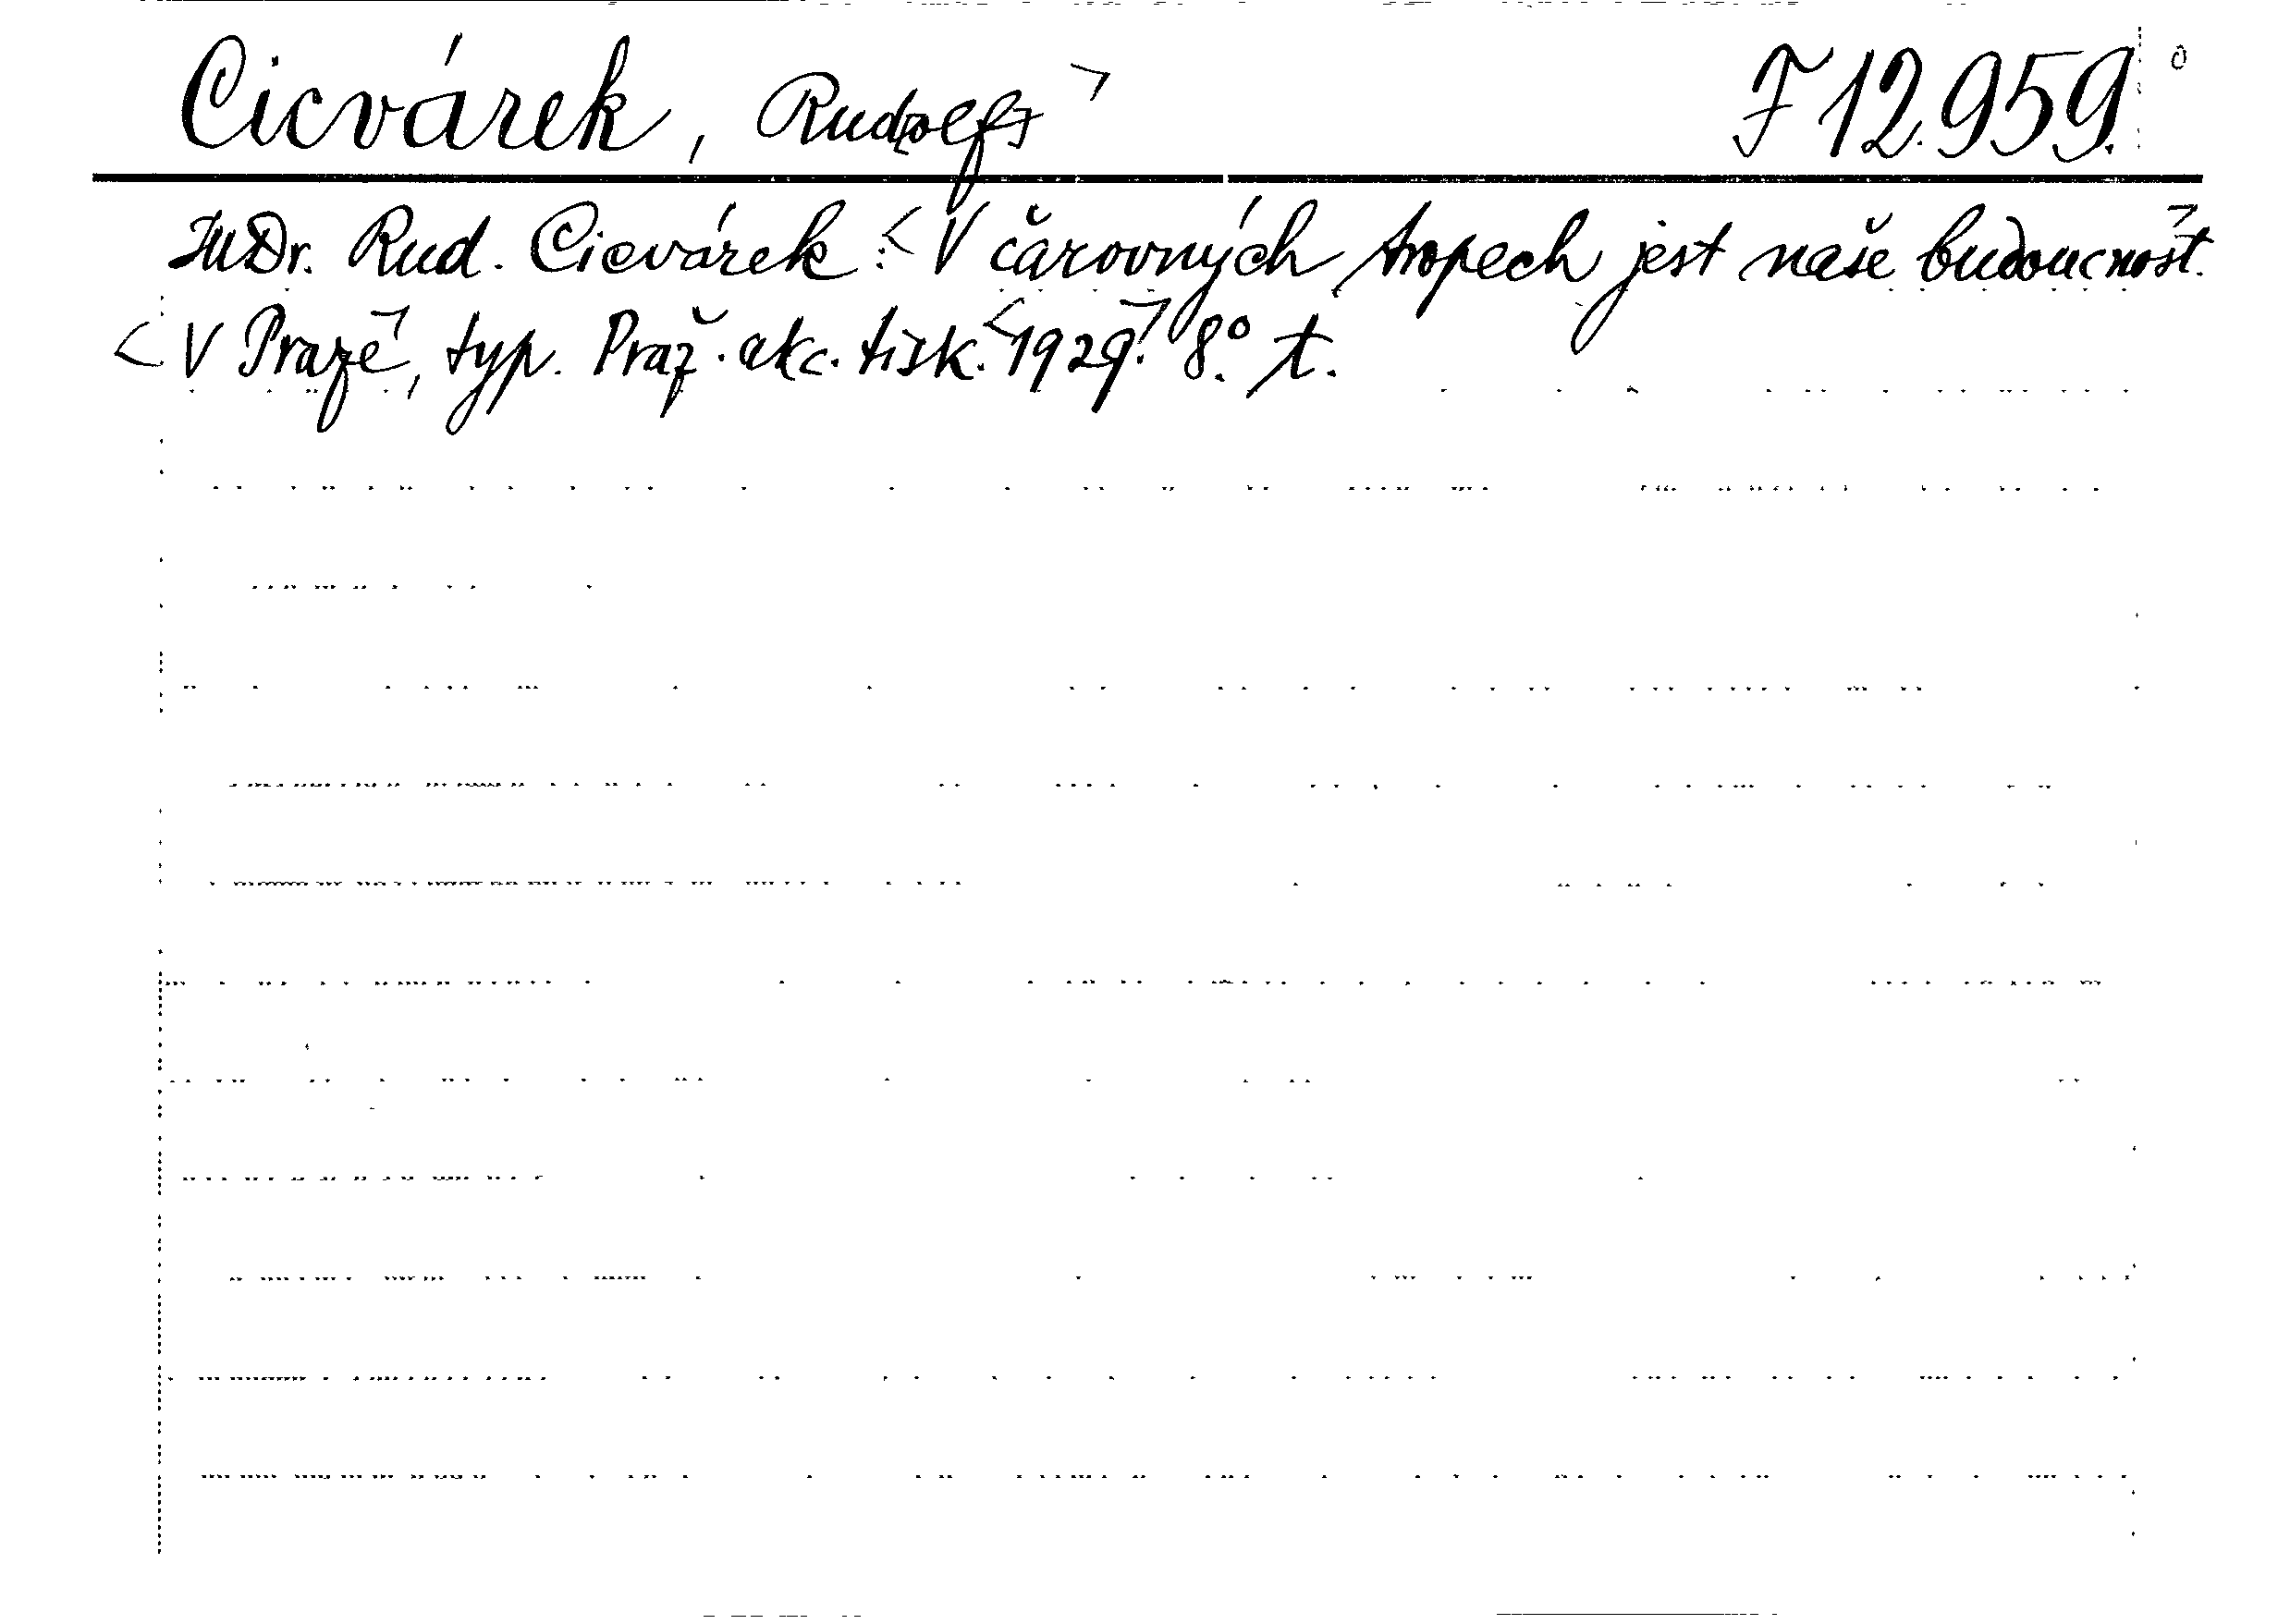 Cicvárek, Rud[olf] F 12.959.
JUDr. Rud. Cicvárek: V čarovných tropech jest naše budoucnost.
V Praze, typ. Praž. akc. tisk. 1929. 8° t.